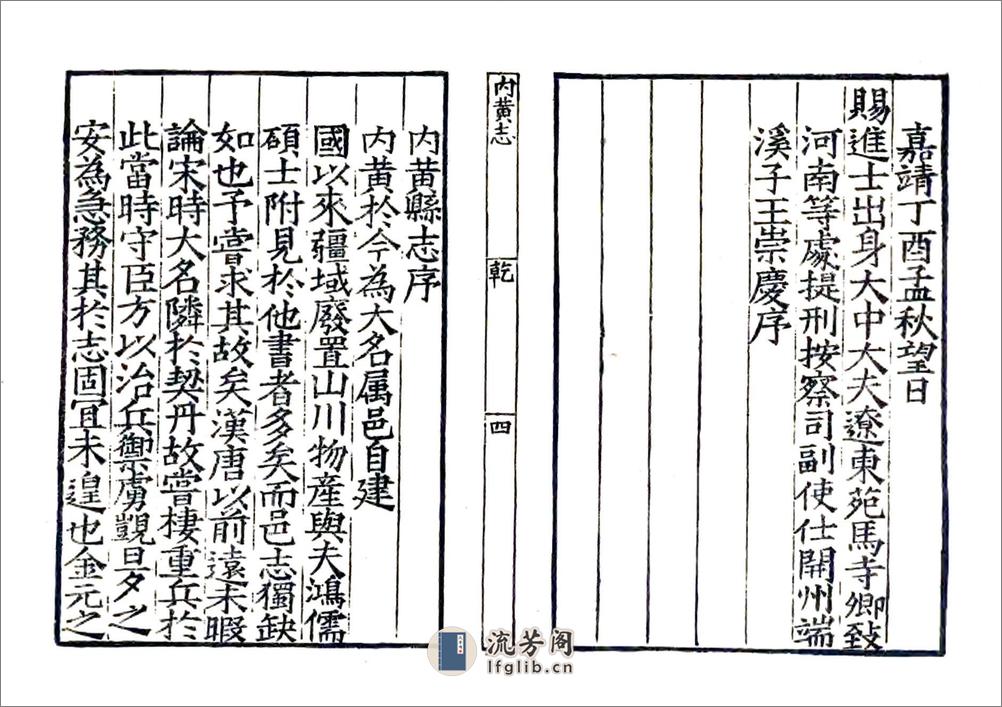 嘉靖丁酉孟秋望日
賜進士出身大中大夫遼東苑馬寺卿致
河南等處提刑按察司副使仕開州端
溪子王崇慶序
内黄志
乾
四
内黄縣志序
内黄於今為大名属邑自建
國以來疆域廢置山川物産與夫鴻儒
碩士附見於他書者多矣而邑志獨缺
如也予嘗求其故矣漢唐以前遠未暇
論宋時大名隣於契丹故嘗棲重兵於
此當時守臣方以治兵禦虜覬旦夕之
安為急務其於志固宜未遑也金元之
流芳阁
lfglib.cn